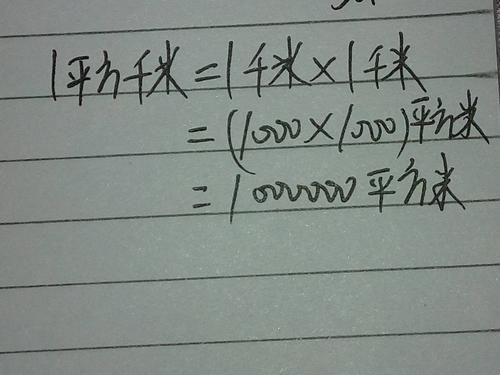 1平方千米=1千米×1千米
=(1000×1000)平方米
=1000000平方米